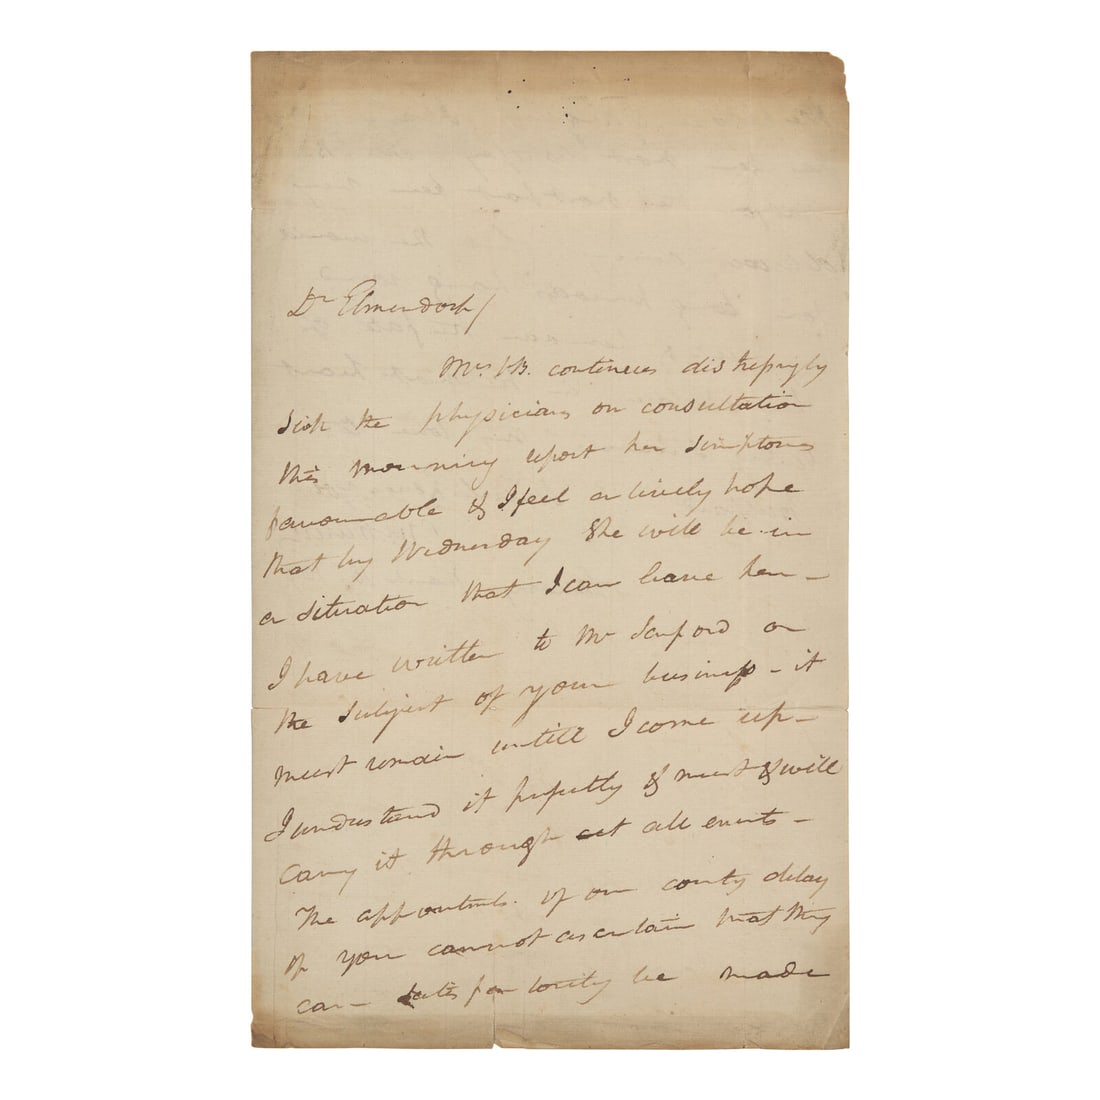 Dr Elmendorf/
Mrs VB. continues distressingly
sick the physicians on consultation
this mourning report her simptoms
favourable & I feel a lively hope
that by Wednesday She will be in
a situation that I can leave her –
I have written to Mr Sanford on
the subject of your business – it
must remain untill I come up –
I understand it perfectly & must & will
carry it through at all events –
The appointmts. of our county delay
if you cannot ascertain that they
can – be made